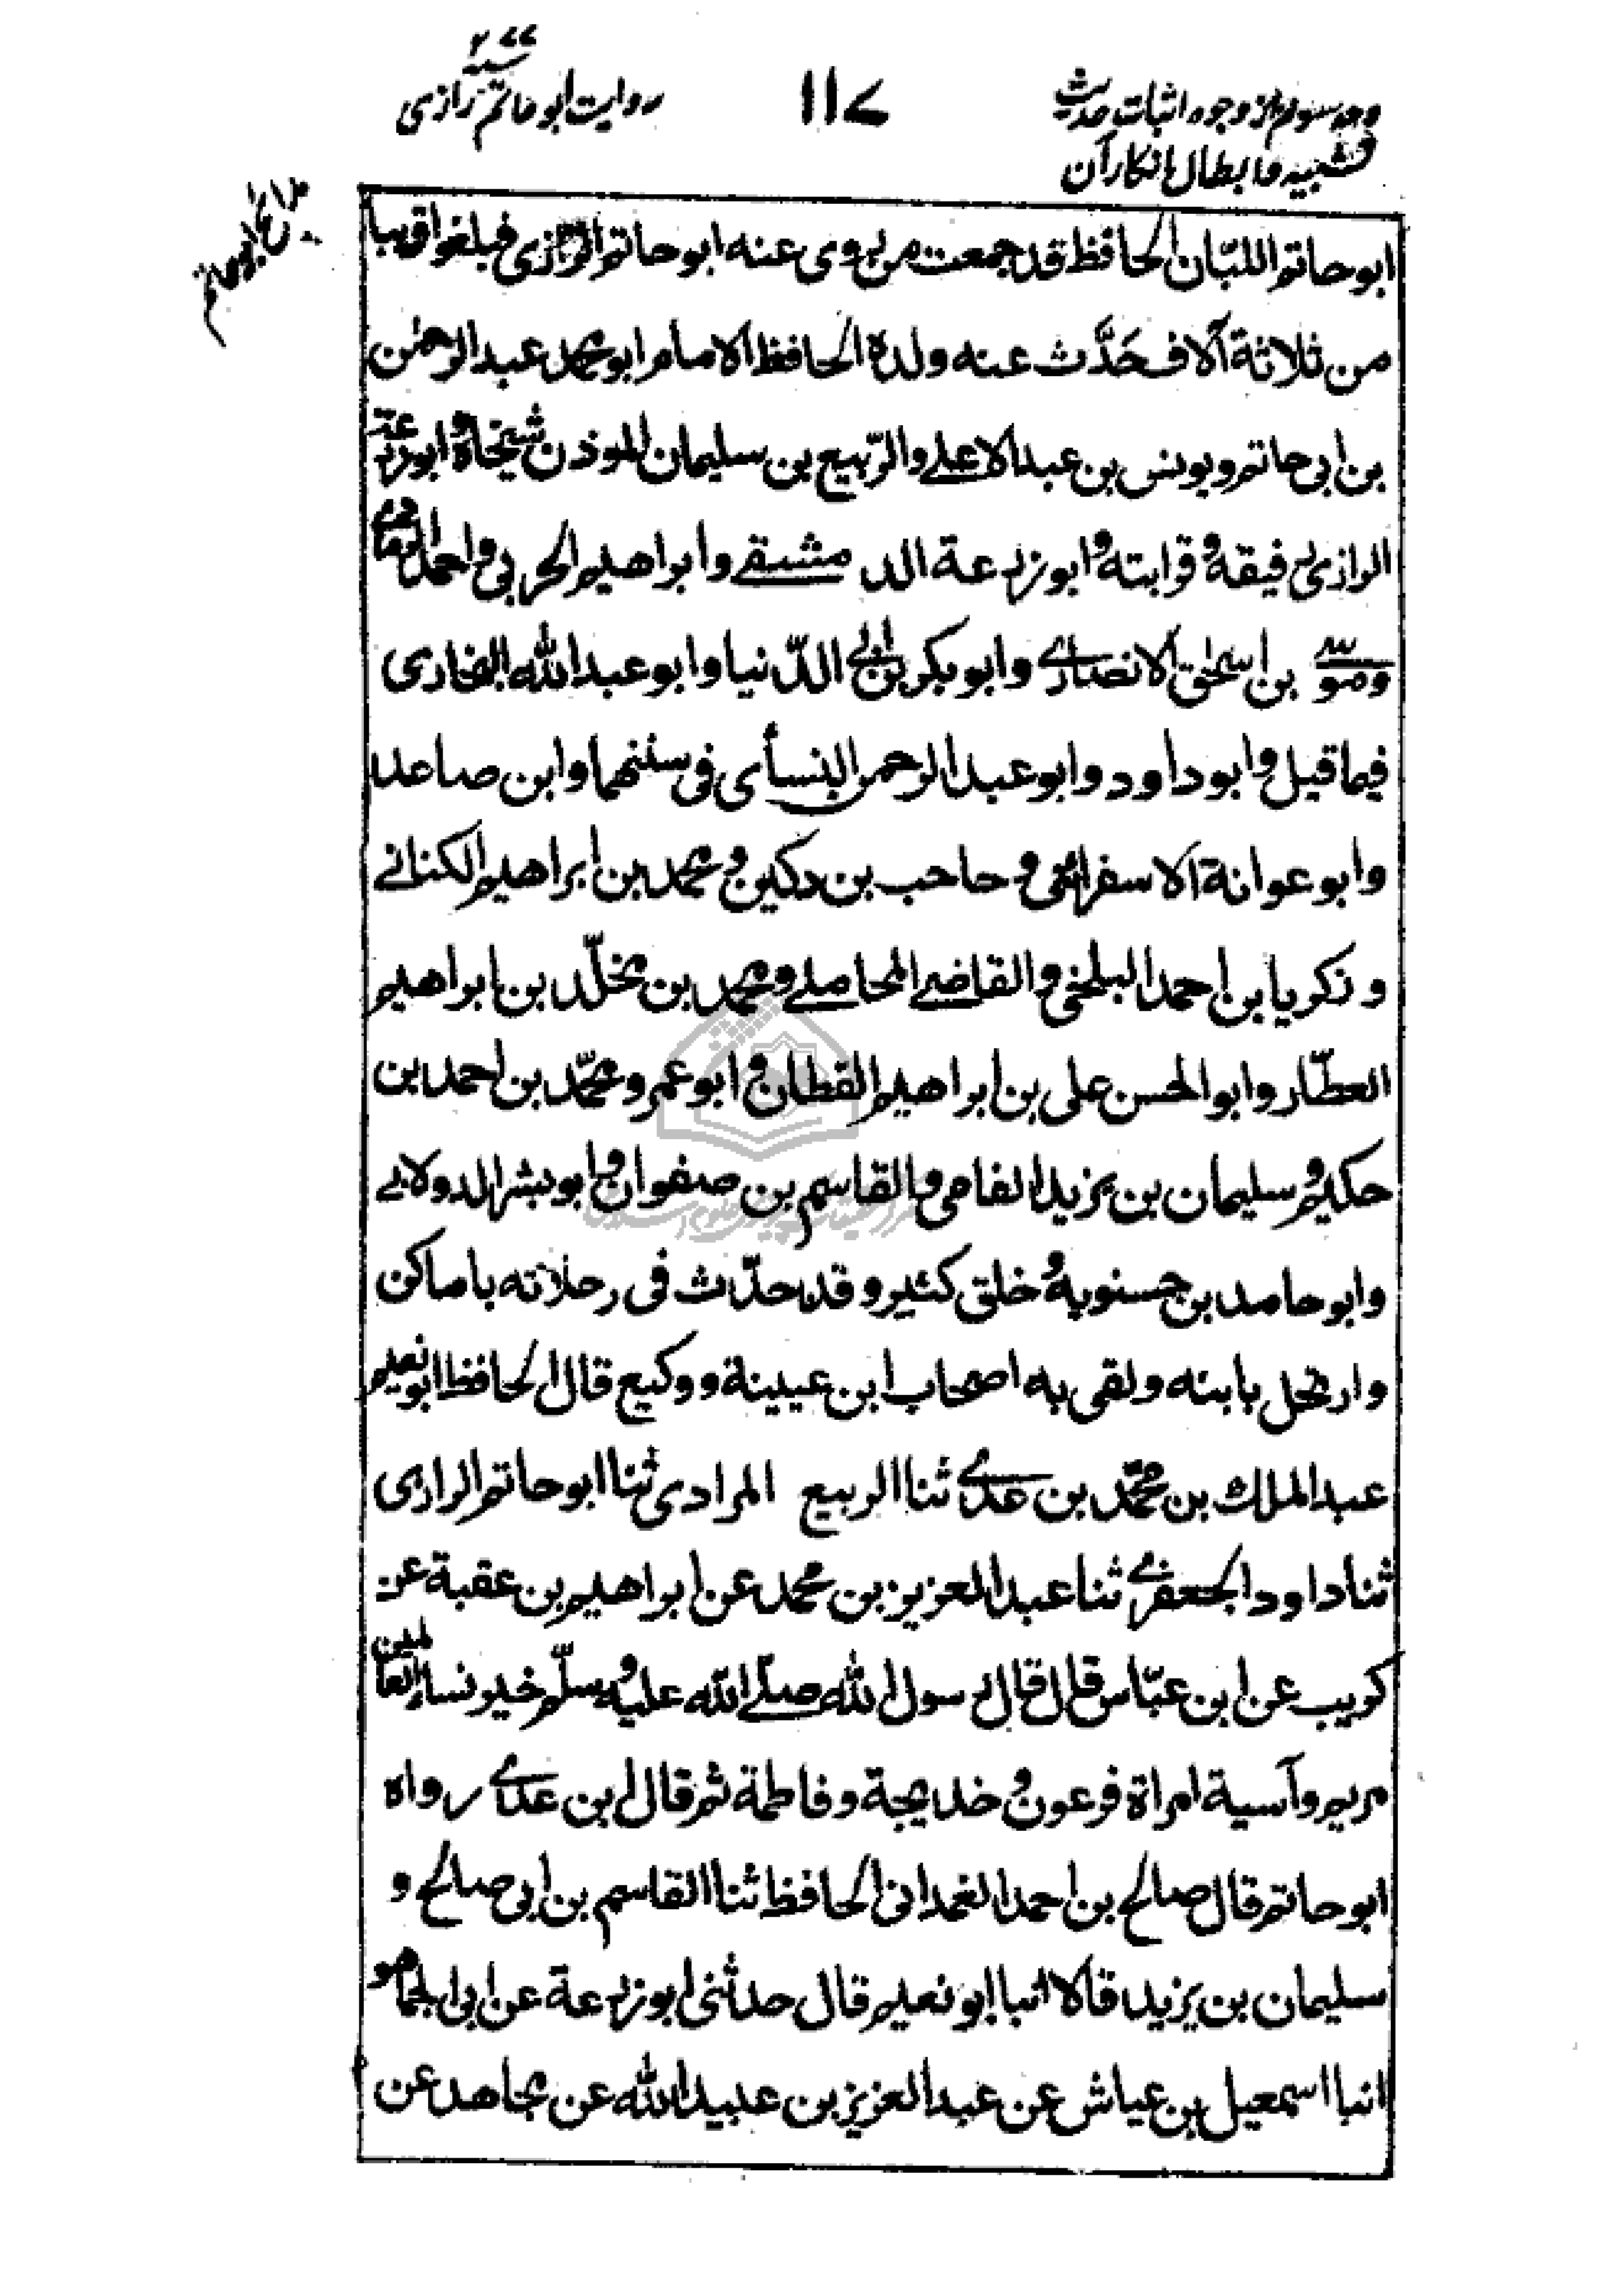 وجه سوم از وجوه اثبات حدیث
تشبیه وابطال انکار آن
۱۱۷
روایت ابو حاتم رازی
سنه ۲۷۷
ابو حاتم اللبّان الحافظ قد جمعت من روى عنه ابو حاتم الرّازى فبلغوا قريبا
من ثلاثة آلاف حَدَّث عنه ولده الحافظ الامام ابو محمد عبد الرحمٰن
بن ابى حاتم ويونس بن عبد الاعلے والرّبيع بن سليمان الموذن شيخاه وابوزرعة
الرازى رفيقه وقرابته وابوزرعة الدمشقے وابراهيم الحربى واحمد الرمادے
وموسے بن اسحٰق الانصارے وابو بكر بن ابى الدّنيا وابو عبد الله البخارى
فيما قيل وابو داود وابو عبد الرحمن النسأى فى سننهما وابن صاعد
وابو عوانة الاسفرائنى وحاجب بن دكين ومحمد بن ابراهيم الكنانے
وزكريا بن احمد البلخى والقاضے المحاملے ومحمد بن مخلّد بن ابراهيم
العطّار وابو الحسن على بن ابراهيم القطان وابو عمرو محمّد بن احمد بن
حكيم وسليمان بن يزيد الفامى والقاسم بن صفوان وابو بشر الدولابے
وابو حامد بن حسنويه وخلق كثير وقد حدّث فى رحلاته باماكن
وارتحل بابنه ولقى به اصحاب ابن عيينة ووكيع قال الحافظ ابو نعيم
عبد الملك بن محمّد بن عدے ثنا الربيع المرادى ثنا ابو حاتم الرازى
ثنا داود الجعفرے ثنا عبد العزيز بن محمد عن ابراهيم بن عقبة عن
كريب عن ابن عبّاس قال قال رسول الله صلّے الله عليه وسلّم خير نساء العالمين
مريم وآسية امراة فرعون وخديجة وفاطمة ثم قال ابن عدے رواه
ابو حاتم قال صالح بن احمد الغمدانى الحافظ ثنا القاسم بن ابى صالح و
سليمان بن يزيد قالا انبا ابو نعيم قال حدثنى ابوزرعة عن ابى الجماهر
انبا اسمعيل بن عياش عن عبد العزيز بن عبيد الله عن مجاهد عن